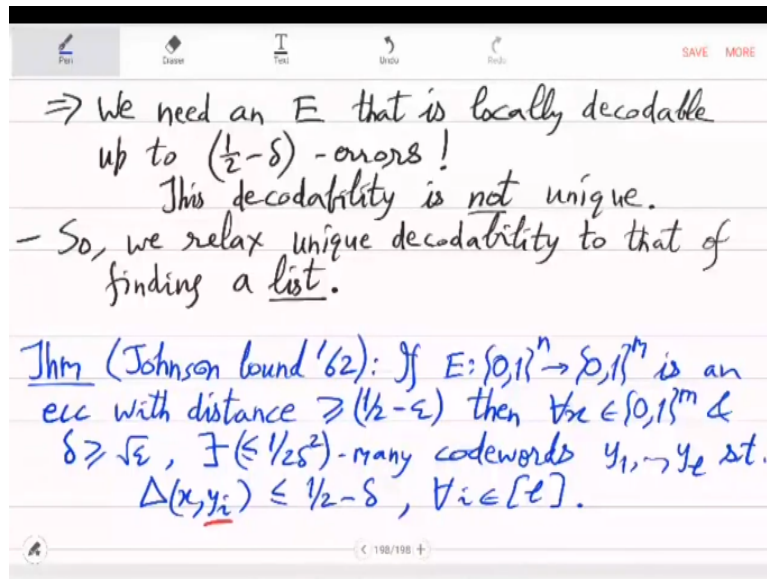 Pen Eraser Text Undo Redo SAVE MORE
⇒ We need an E that is locally decodable
up to (1/2-δ) -errors!
This decodability is not unique.
- So, we relax unique decodability to that of
finding a list.
Thm (Johnson bound '62): If E: {0,1}ⁿ → {0,1}ᵐ is an
ecc with distance ≥ (1/2-ε) then ∀x ∈ {0,1}ᵐ &
δ ≥ √ε, ∃ (≤ 1/2δ²)-many codewords y₁,..,yₗ st.
Δ(x,yᵢ) ≤ 1/2-δ, ∀i∈[ℓ].
< 198/198 +